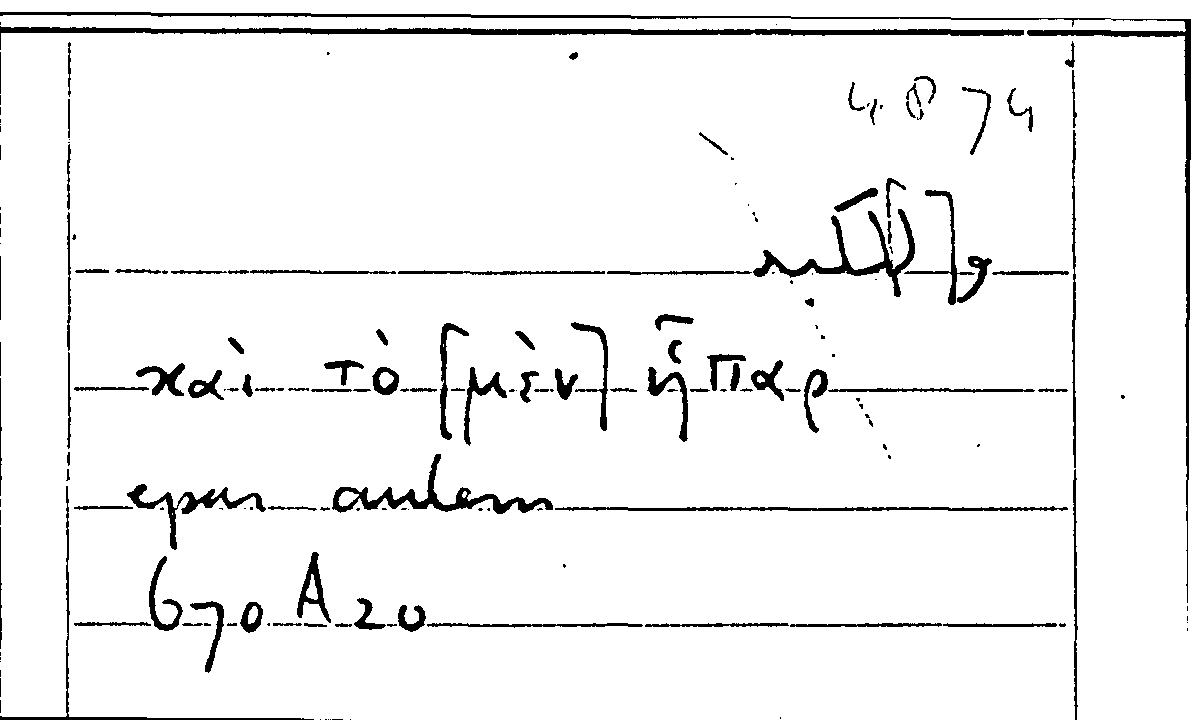 4874
καὶ τὸ [μὲν] ἧπαρ
epar autem
670 A 20